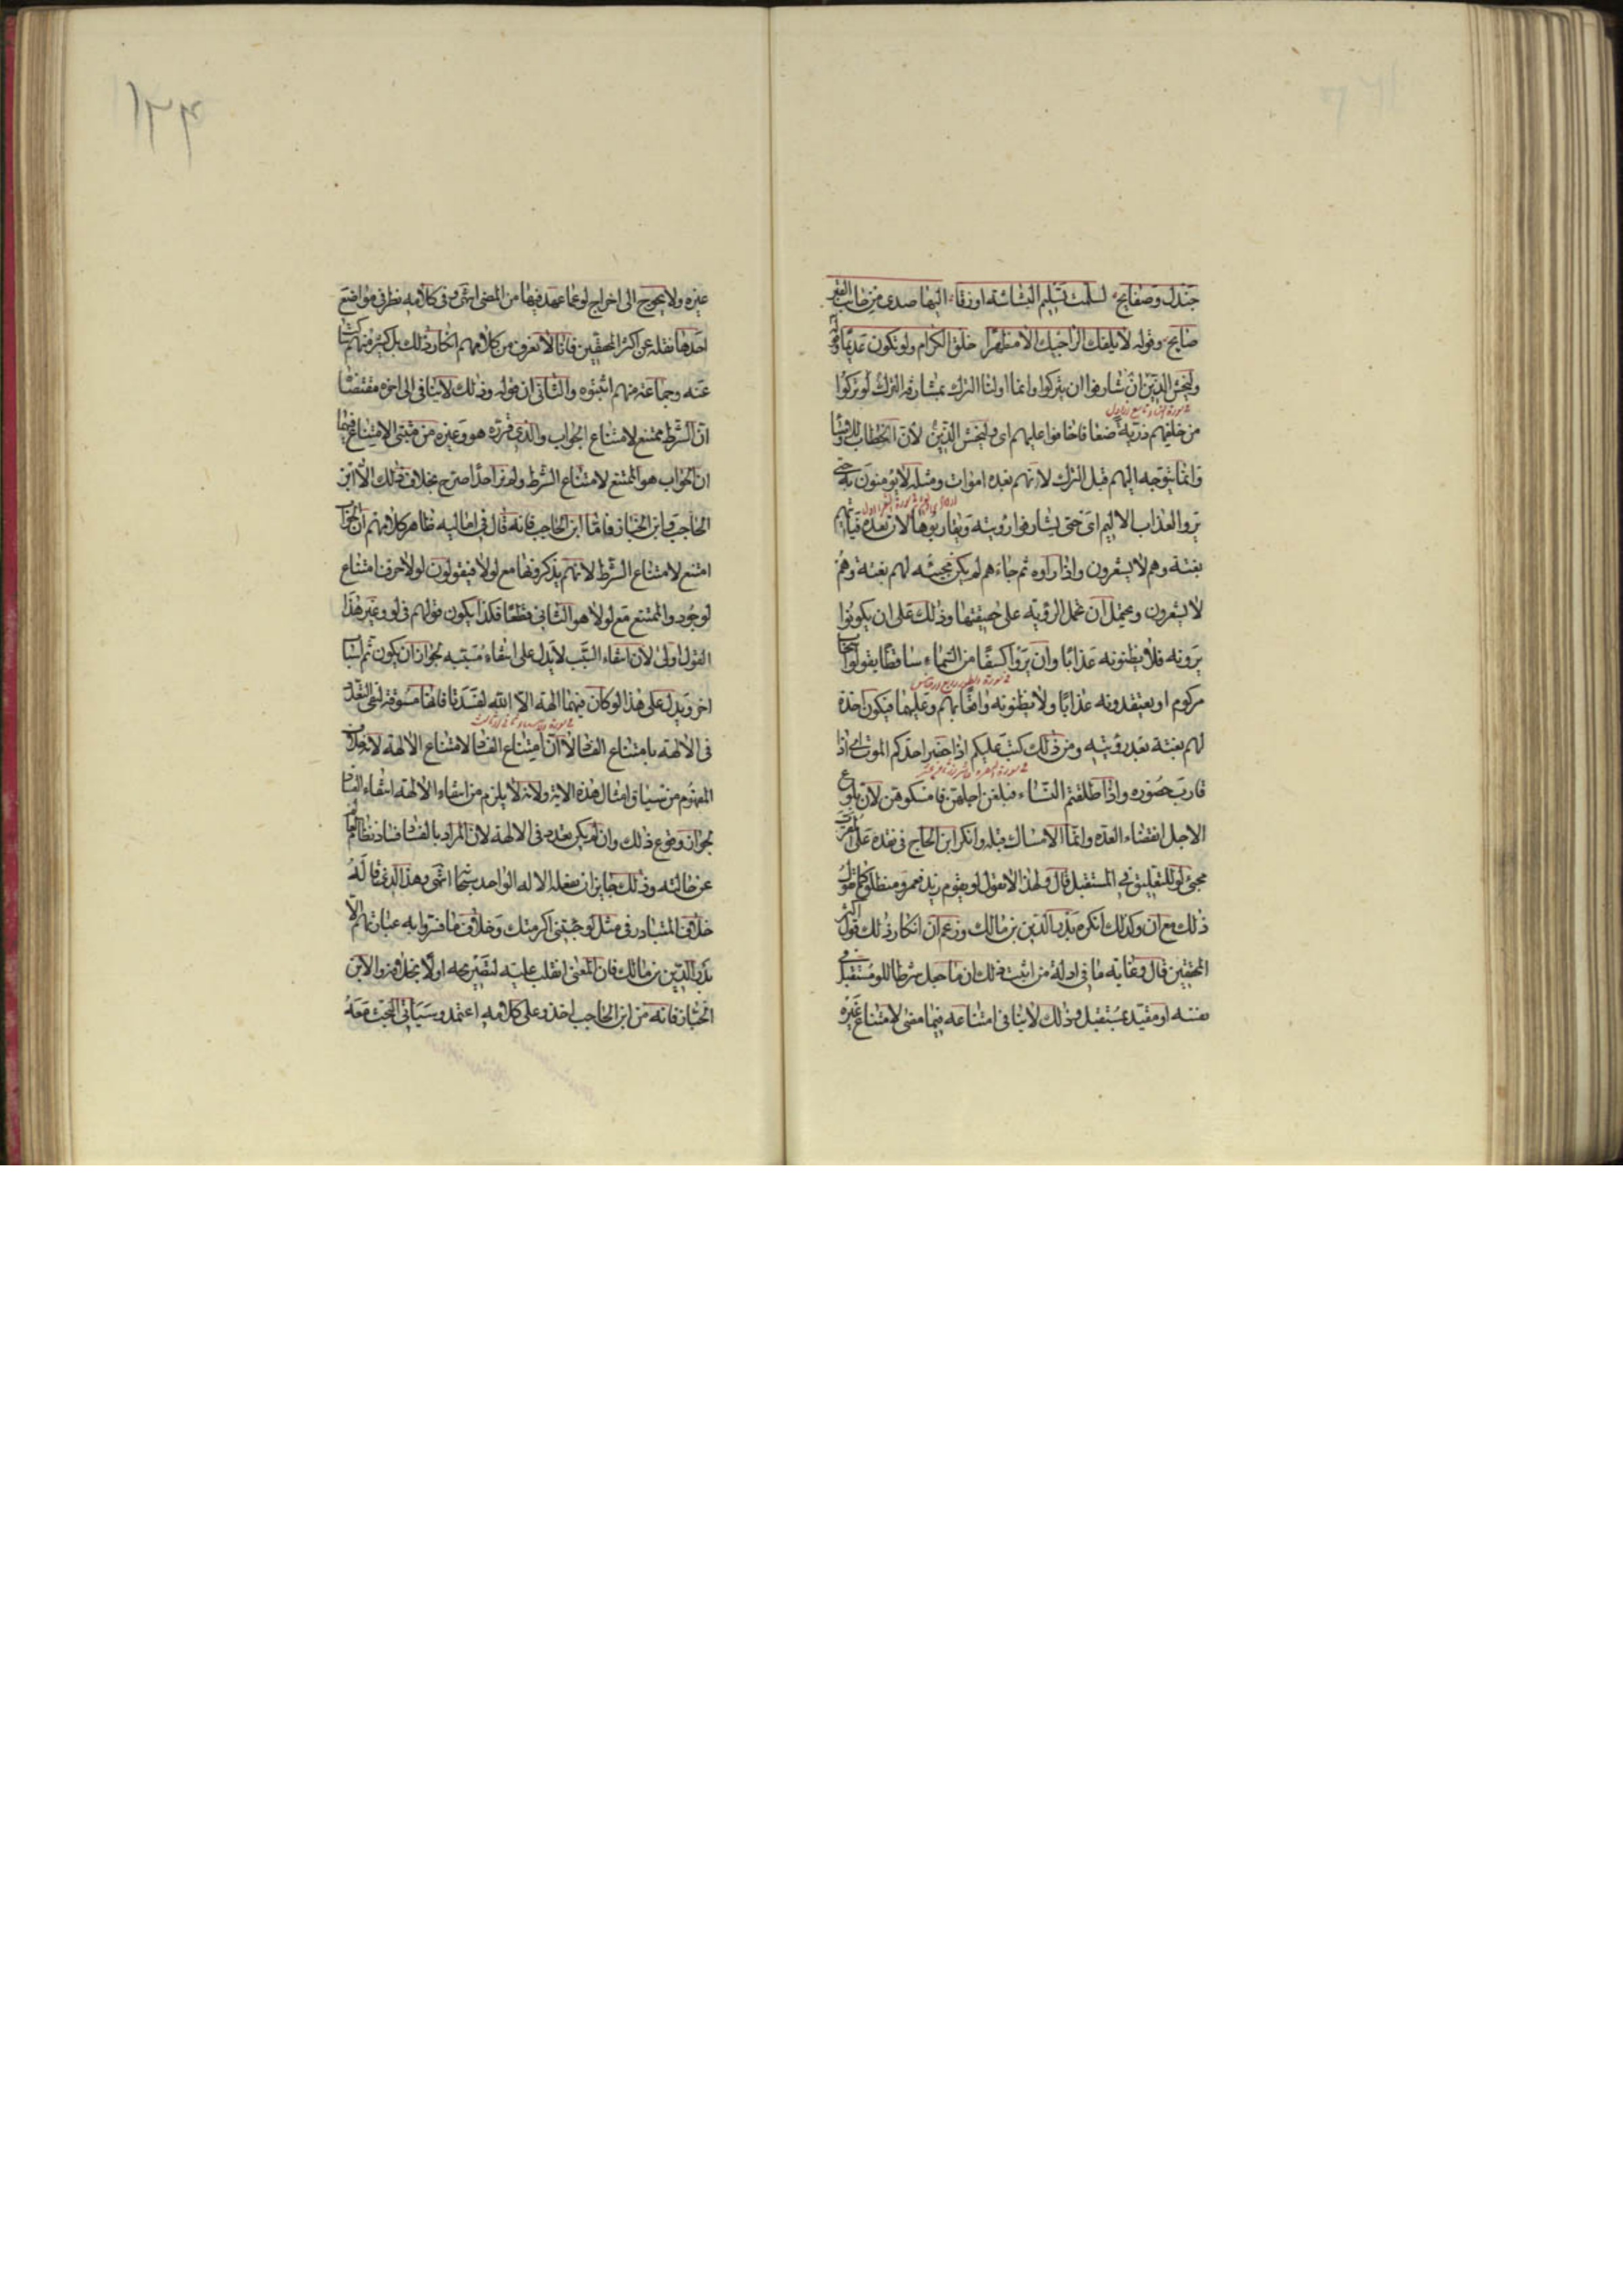 جندل وصفايح لسلمت تسليم البشاشة اوزقا اليها صدى من جانب القبر
صايح وقوله لا يلفك الراجيك الا مظهرا خلق الكرام ولو تكون عديما وقوله
وليخش الذين ان شارفوا ان يتركوا وانما اولنا الترك بمشارفة الترك لو تركوا
من خلفهم ذرية ضعافا خافوا عليهم اى وليخش الذين لان الخطاب للاوصيا
وانما يتوجه اليهم قبل الترك لانهم بعده اموات ومثله لا يؤمنون به حتى
يروا العذاب الاليم اى حتى يشارفوا رؤيته ويقاربوها لان بعده فياتيهم
بغتة وهم لا يشعرون واذا راوه ثم جاءهم لم يكن مجيئه لهم بغتة وهم
لا يشعرون ويحتمل ان تحمل الرؤية على حقيقتها وذلك على ان يكونوا
يرونه فلا يظنونه عذابا وان يروا كسفا من السماء ساقطا يقولوا سحاب
مركوم او يعتقدونه عذابا ولا يظنونه واقعا بهم وعليهما فيكون اخذه
لهم بغتة بعد رؤيته ومن ذلك كتب عليكم اذا حضر احدكم الموت اى اذا
قارب حضوره واذا طلقتم النساء فبلغن اجلهن فامسكوهن لان بلوغ
الاجل انقضاء العدة وانما الامساك قبله وانكر ابن الحاج فى نقده على المقرب
مجئ لو للتعليق فى المستقبل قال ولهذا لا تقول لو يقوم زيد فعمرو منطلق كما تقول
ذلك مع ان وكذلك انكره بدر الدين بن مالك وزعم ان انكار ذلك قول اكثر
المحققين قال وغاية ما فى ادلة من اثبت ذلك ان ما جعل شرطا للو مستقبل فى
نفسه او مقيد بمستقبل وذلك لا ينافى امتناعه فيما مضى لامتناع غيره
غيره ولا يحوج الى اخراج لو عما عهد فيها من المضى انتهى وفى كلامه نظر فى مواضع
احدها نقله عن اكثر المحققين فانا لا نعرف من كلامهم انكار ذلك بل كثير منهم ساكت
عنه وجماعة منهم اثبتوه والثانى ان قوله وذلك لا ينافى الى اخره مقتضاه
ان الشرط ممتنع لامتناع الجواب والذى قرره هو وغيره من مثبتى الامتناع فيهما
ان الجواب هو الممتنع لامتناع الشرط ولم نر احدا صرح بخلاف ذلك الا ابن
الحاجب وابن الخباز فاما ابن الحاجب فانه قال فى اماليه ظاهر كلامهم ان الجواب
امتنع لامتناع الشرط لانهم يذكرونها مع لولا فيقولون لولا حرف امتناع
لوجود والممتنع مع لولا هو الثانى قطعا فكذا يكون قولهم فى لو وغير هذا
القول اولى لان انتفاء السبب لا يدل على انتفاء مسببه لجواز ان يكون ثم اسباب
اخر ويدل على هذا لو كان فيهما الهة الا الله لفسدتا فانها مسوقة لنفى التعدد
فى الالهة بامتناع الفساد لا ان امتناع الفساد لامتناع الالهة لانه خلاف
المفهوم من سياق امثال هذه الاية ولانه لا يلزم من انتفاء الالهة انتفاء الفساد
لجواز وقوع ذلك وان لم يكن تعدد فى الالهة لان المراد بالفساد فساد نظام العالم
عن حالته وذلك جايز ان يفعله الاله الواحد سبحانه انتهى وهذا الذى قاله
خلاف المتبادر فى مثل لو جئتنى اكرمتك وخلاف ما فسروا به عبارتهم الا
بدر الدين بن مالك فان المعنى انقلب عليه لتصريحه اولا بخلافه والا ابن
الخباز فانه من ابن الحاجب اخذ وعلى كلامه اعتمد وسياتى البحث معه